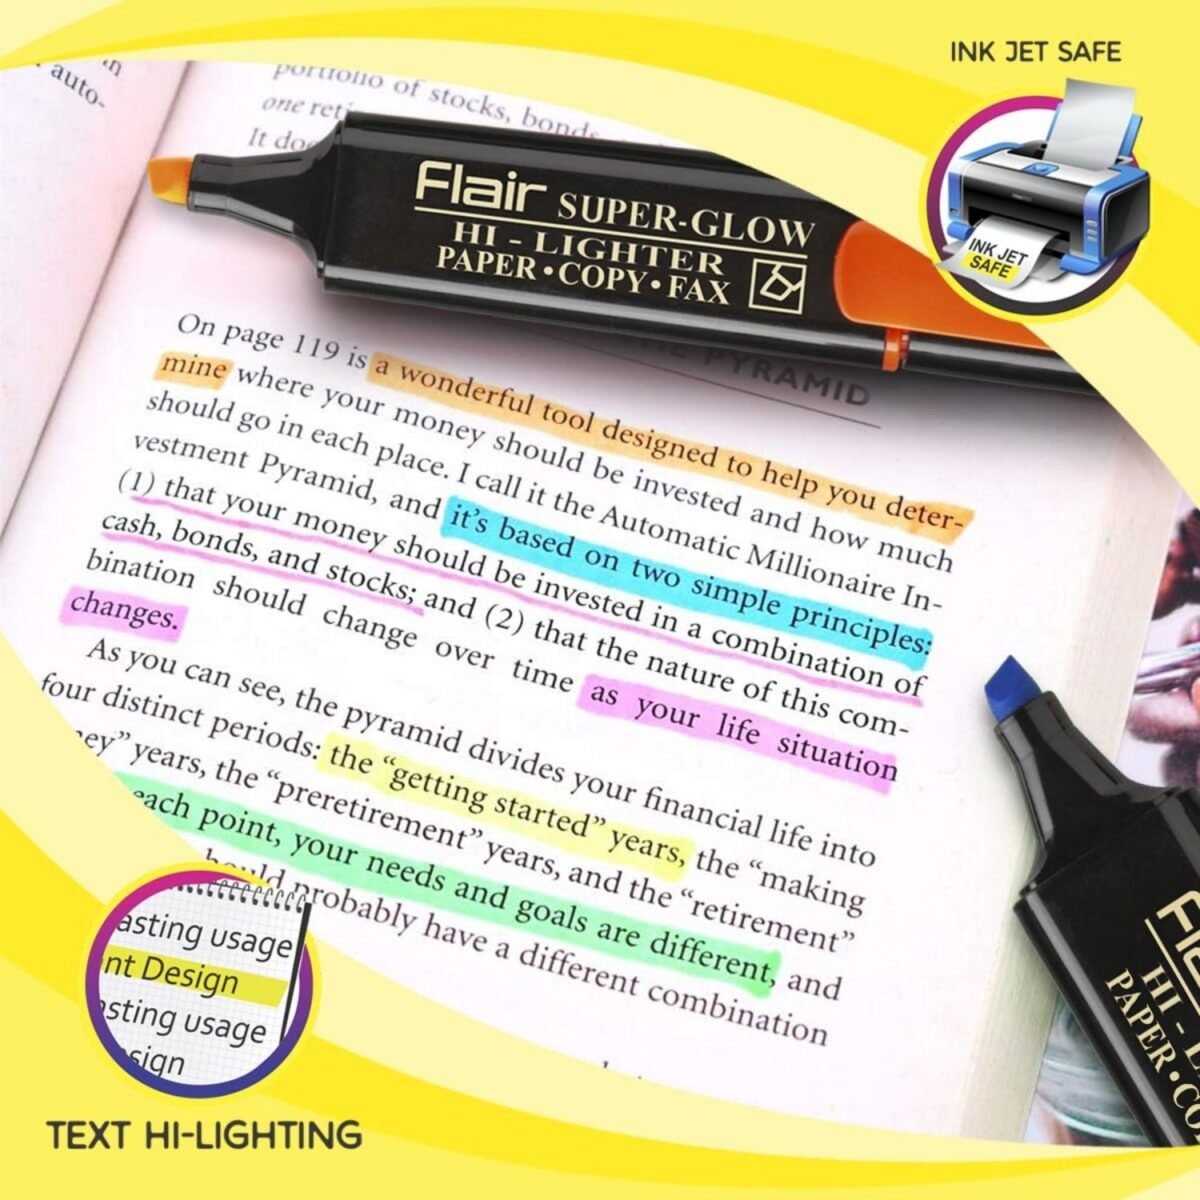 INK JET SAFE
in
auto-
portfolio of stocks, bonds
one
It
Flair SUPER-GLOW
HI - LIGHTER
PAPER • COPY • FAX
INK JET
SAFE
PYRAMID
On page 119 is a wonderful tool designed to help you deter-
mine where your money should be invested and how much
should go in each place. I call it the Automatic Millionaire In-
vestment Pyramid, and it's based on two simple principles:
(1) that your money should be invested in a combination of
cash, bonds, and stocks; and (2) that the nature of this com-
bination should change over time as your life situation
changes.
As you can see, the pyramid divides your financial life into
four distinct periods: the "getting started" years, the "making
years, the "preretirement" years, and the "retirement"
each point, your needs and goals are different, and
probably have a different combination
asting usage
nt Design
sting usage
sign
HI -
PAPER • CO
TEXT HI-LIGHTING